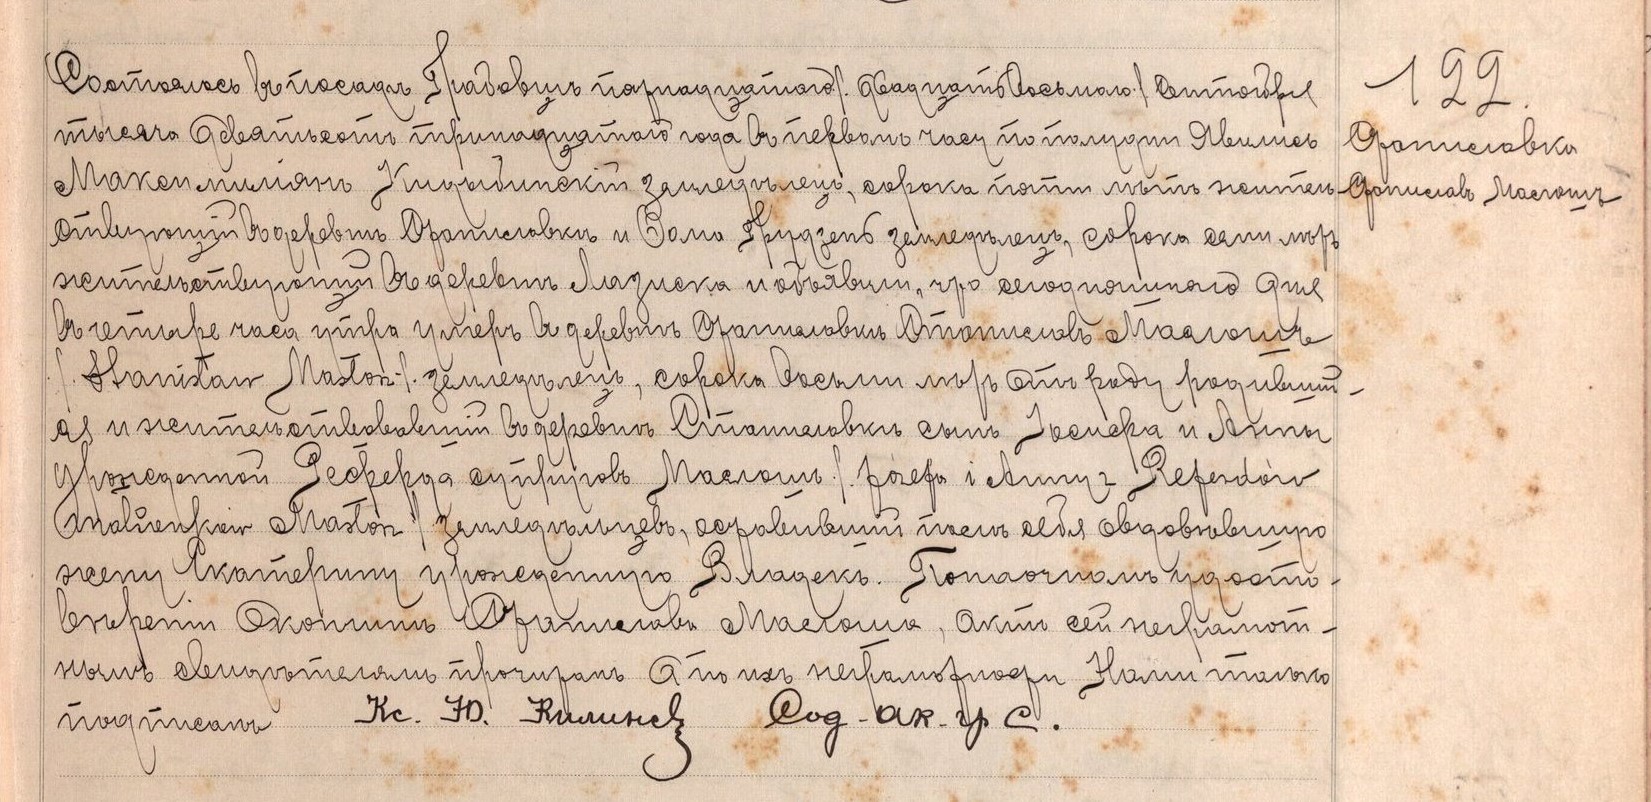 122.
Станиславка
Станиславъ Маслошъ
Состоялось въ посадѣ Грабовцѣ пятнадцатаго /. двадцать восьмаго ./ Сентября
тысяча девятьсотъ тринадцатаго года въ первомъ часу по полудни Явились
Максимилiянъ земледѣлецъ, сорока пяти лѣтъ житель-
ствующiй въ деревнѣ Станиславкѣ и Грудзень земледѣлецъ, сорока семи лѣтъ
жительствующiй въ деревнѣ Лазиска и объявили, что сегодняшняго дня
въ четыре часа утра умеръ въ деревнѣ Станиславкѣ Станиславъ Маслошъ
/. Stanisław Masłosz ./. земледѣлецъ, сорока восьми лѣтъ отъ роду родившiй-
ся и жительствовавшiй въ деревнѣ Станиславкѣ сынъ Iосифа и Анны
урожденной Реферда супруговъ Маслошъ /. Józefa i Anny z Referdów
małżonków Masłosz ./ земледѣльцевъ, оставившiй послѣ себя овдовѣвшую
жену Екатерину урожденную Владекъ. По наочномъ удосто-
вѣренiи о кончинѣ Станислава Маслоша, актъ сей неграмот-
нымъ свидѣтелямъ прочитанъ а по ихъ неграмотности Нами только
подписанъ Кс. Ю. Сод. ак. гр. с.